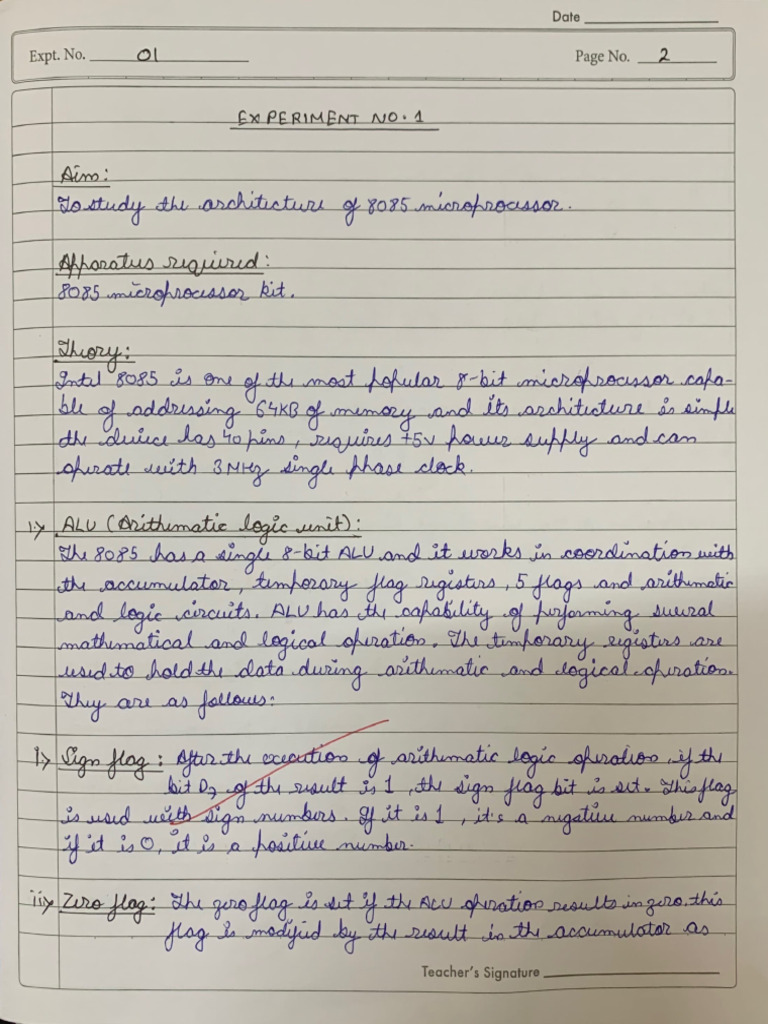 Date
Expt. No. 01
Page No. 2
EXPERIMENT NO. 1
Aim:
To study the architecture of 8085 microprocessor.
Apparatus required:
8085 microprocessor kit.
Theory:
Intel 8085 is one of the most popular 8-bit microprocessor capa-
ble of addressing 64KB of memory and its architecture is simple
the device has 40 pins, requires +5V power supply and can
operate with 3MHz single phase clock.
1:> ALU (Arithmatic logic unit):
The 8085 has a single 8-bit ALU and it works in coordination with
the accumulator, temporary flag registers, 5 flags and arithmatic
and logic circuits. ALU has the capability of performing several
mathematical and logical operation. The temporary registers are
used to hold the data during arithmatic and logical operation.
They are as follows:
i:> Sign flag: After the execution of arithmatic logic operation, if the
bit D7 of the result is 1, the sign flag bit is set. This flag
is used with sign numbers. If it is 1, it's a negative number and
if it is 0, it is a positive number.
ii:> Zero flag: The zero flag is set if the ALU operation results in zero. this
flag is modified by the result in the accumulator as
Teacher's Signature